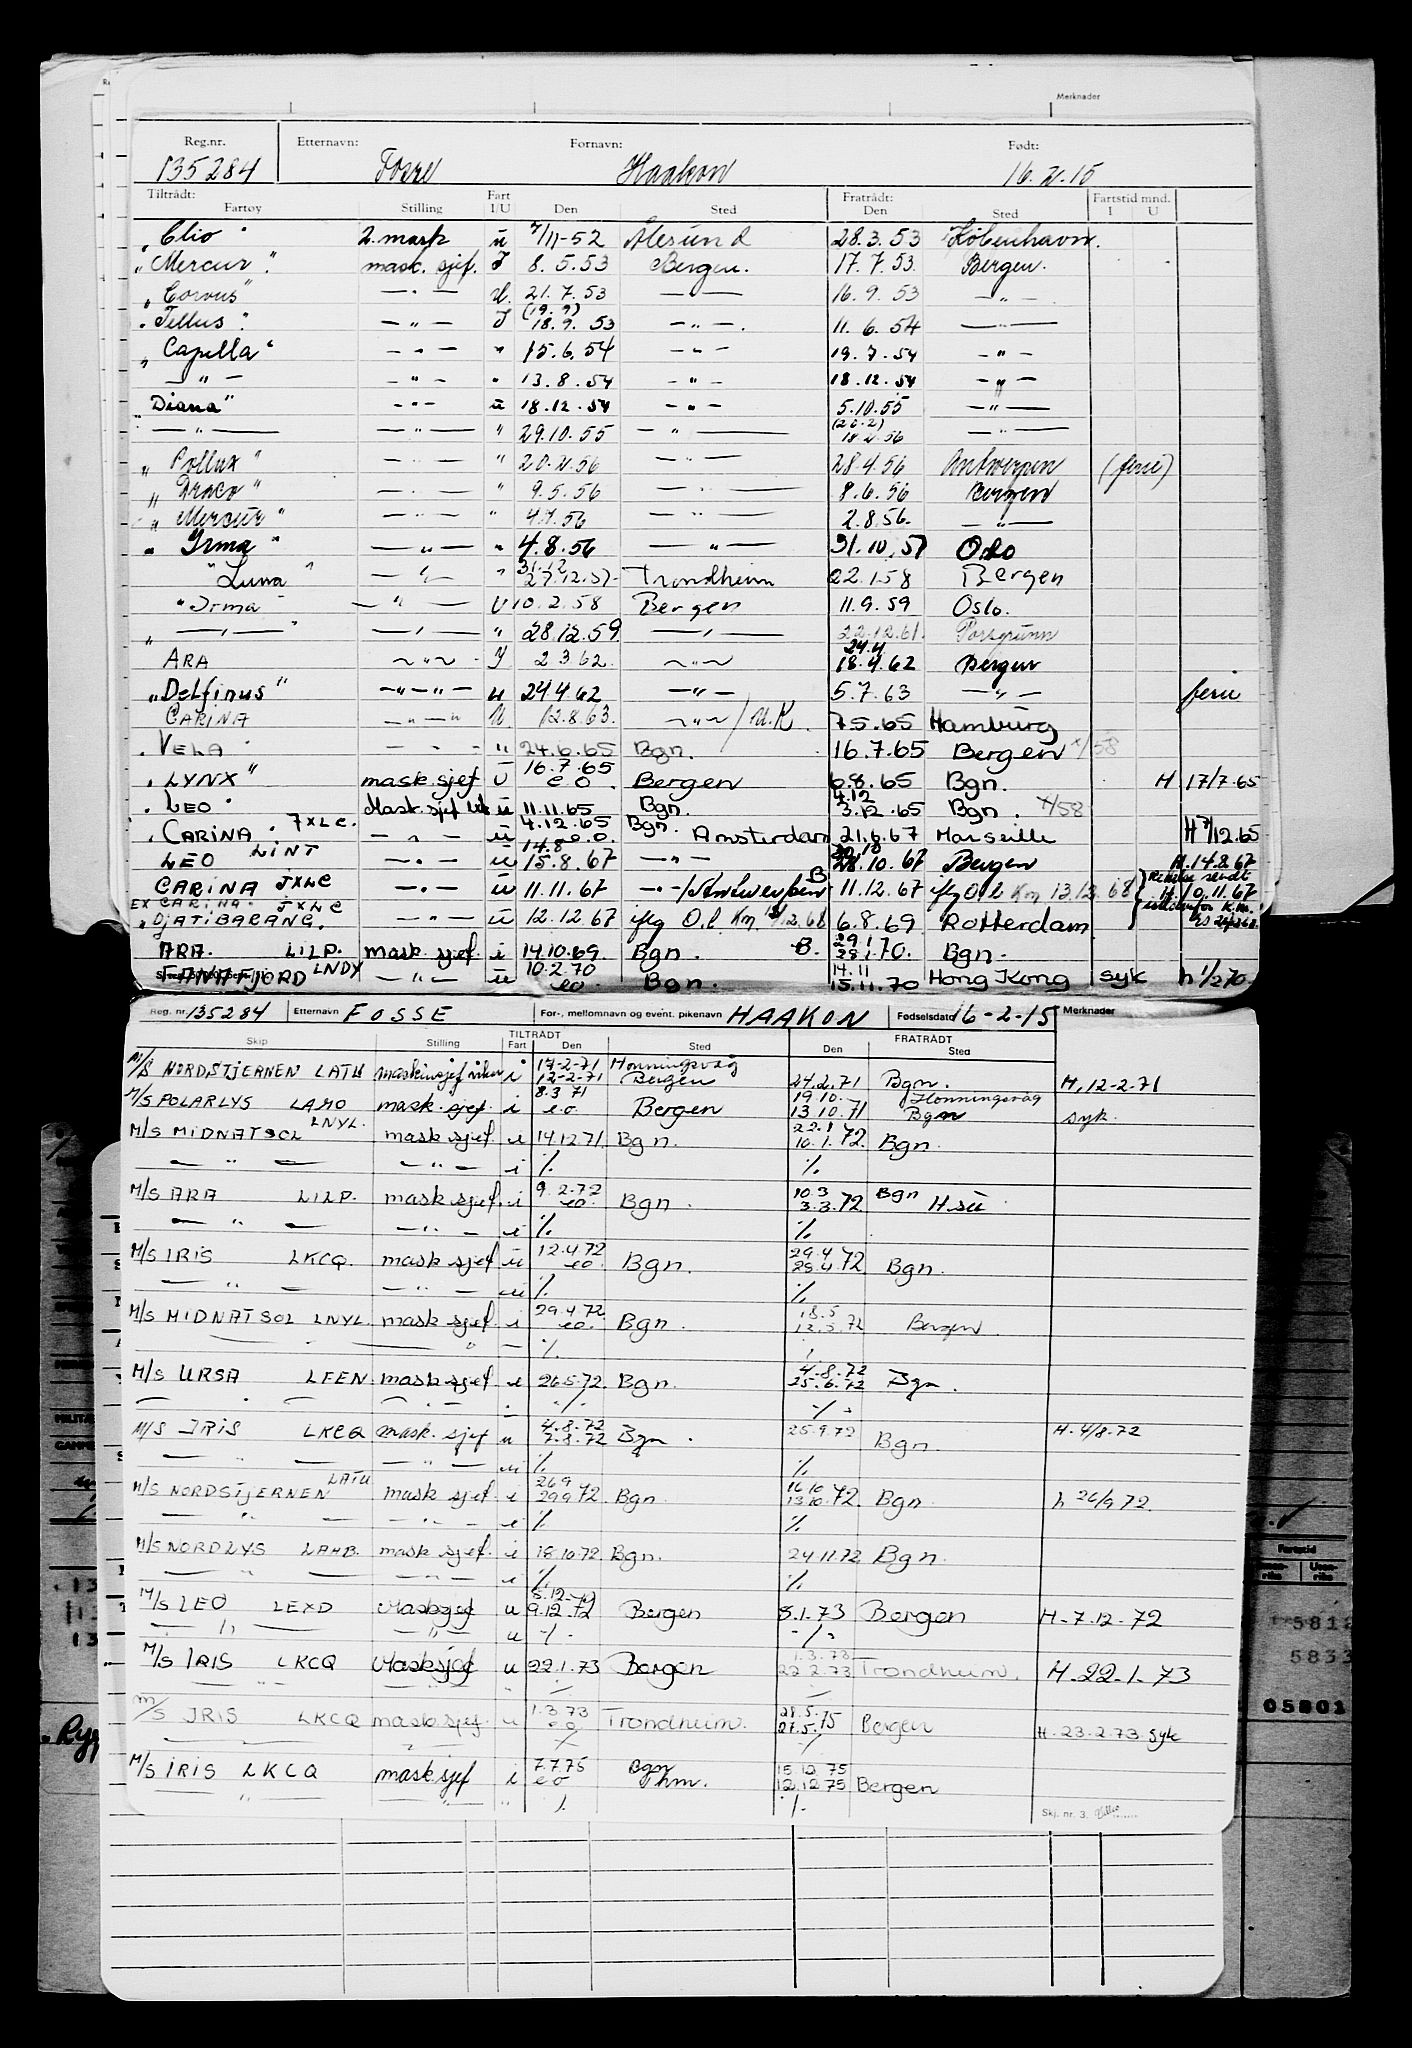 Merknader
Reg.nr. 135284 Etternavn: Fosse Fornavn: Haakon Født: 16.2.15
Tiltrådt: Fartøy Stilling Fart I/U Den Sted Fratrådt: Den Sted Fartstid mnd. I U
"Clio" 2. mask u 7/11-52 Ålesund 28.3.53 København.
"Mercur". mask. sjef. I 8.5.53 Bergen. 17.7.53 Bergen.
"Corvus" — " — U. 21.7.53 — " — 16.9.53 — " —
"Tellus". — " — I (19.9) 18.9.53 — " —. 11.6.54 — " —
"Capella" — " — " 15.6.54 — " — 19.7.54 — " —
— " — — " — " 13.8.54 — " — 18.12.54 — " —
"Diana" — " — u 18.12.54 — " — 5.10.55 — " —
— " — — " — " 29.10.55 — " — (20.2) 18.2.56 — " —
"Pollux" — " — " 20.2.56 — " — 28.4.56 Antwerpen (ferie)
"Draco" — " — " 9.5.56 — " — 8.6.56 Bergen
"Mercur" — " — " 4.7.56 — " — 2.8.56. — " —
"Irma" — " — " 4.8.56 — " — 31.10.57 Oslo
"Luna" — " — " 31.12 27.12.57 Trondheim 22.1.58 Bergen
"Irma — " — U 10.2.58 Bergen 11.9.59 Oslo.
" — " — " — " — " 28.12.59 — " — 22.12.61. Porsgrunn
ARA — " — I 2 3 62 — " — 24.4 18.4.62 Bergen
"Delfinus" — " — " — u 24.4.62 — " — 5.7.63 — " — ferie
CARINA — " — " U 12.8.63. — " — / U.K. 7.5.65 Hamburg
. VELA — " — " 24.6.65 Bgn. 16.7.65 Bergen x/58
. LYNX" mask.sjef U 16.7.65 e o . Bergen 6.8.65 Bgn. H 17/7.65
. LEO . Mask.sjef u 11.11.65 Bgn. 4.12 3.12.65 Bgn. x/58
. CARINA . JXLC. — " — u 4.12.65 e.o. Bgn. Amsterdam 21.6.67 Marseille H 7/12.65
LEO LINT — " — u 14.8 15.8.67 — " — 30.10 28.10.67 Bergen H.14.8.67
CARINA JXLC — " — u 11.11.67 — " — / Antwerpen B 11.12.67 iflg O.l. Km 13.12.68 H.10.11.67
EX CARINA. JXLC
"DJATIBARANG. — " — u 12.12.67 iflg O.l. Km 6.8.69 Rotterdam
ARA. LILP. mask.sjef i 14.10.69. Bgn. B. 29.1 28.1.70. Bgn.
FANAFJORD LNDY — " — u 10.2.70 eo Bgn. 14.11 15.11.70 Hong Kong syk h 1/2 70.
Reg. nr. 135284 Etternavn FOSSE For-, mellomnavn og event. pikenavn HAAKON Fødselsdato 16-2-15 Merknader
TILTRÅDT FRATRÅDT
Skip Stilling Fart Den Sted Den Sted
M/S NORDSTJERNEN LATU maskinsjef i 17-2-71 12-2-71 Honningsvåg Bergen 24.2.71 Bgn. H, 12-2-71
M/S POLARLYS LAHO mask. sjef. i 8.3 71 eo Bergen 19.10. 13.10.71 Honningsvåg Bgn syk.
M/S MIDNATSOL LNYL. mask sjef i 14.12.71. Bgn. 22.1 10.1.72. Bgn.
— " — — " — i %. %.
M/S ARA LILP. mask sjef. i 9.2.72 eo. Bgn. 10.3 3.3.72 Bgn H.
— " — — " — i %. %.
M/S IRIS LKCQ. mask sjef u 12.4.72 eo. Bgn. 29.4 28.4.72 Bgn.
— " — — " — u %. %.
M/S MIDNATSOL LNYL. mask sjef i 29.4.72 eo. Bgn. 18.5 12.5.72 Bergen
— " — %.
M/S URSA LFEN mask sjef. i 26.5.72. Bgn. 4.8.72 25.6.72 Bgn.
— " — — " — %. %.
M/S IRIS LKCQ mask. sjef u 4.8.72 7.8.72 Bgn. 25.9.72 Bgn. H. 4/8-72
— " — — " — u %. %.
M/S NORDSTJERNEN LATU mask sjef. i 26 9 29 9 72 Bgn. 16 10 13 10.72. Bgn. h 26/9 72
— " — — " — i %. %.
M/S NORDLYS LAHB. mask sjef. i 18.10.72 Bgn. 24 11.72 Bgn.
— " — — " — i %. %.
M/S LEO LEXD Masksjef u 8.12. 9.12.72 Bergen 8.1.73 Bergen H-7.12-72
— " — — " — u %. %.
M/S IRIS LKCQ Masksjef u 22.1.73 Bergen 1.3.73 22.2.73 Trondheim. H-22.1.73
M/S IRIS LKCQ mask sjef. u 1.3.73 eo Trondheim. 28.5. 27.5.75 Bergen H. 23.2.73 syk
M/S IRIS LKCQ mask sjef i 7.7.75 eo Bgn Thm. 15 12 75 12.12.75 Bergen
— " — — " — " %. %.
Skj. nr. 3.
Fartstid
5812
5833
05801